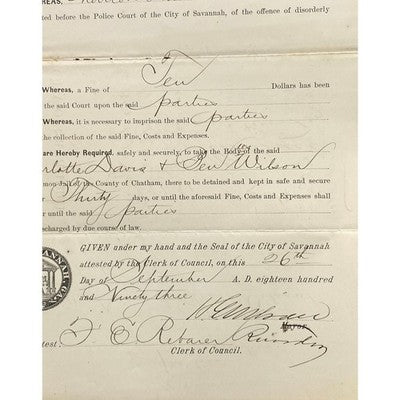 REAS,
cted before the Police Court of the City of Savannah, of the offence of disorderly
Whereas, a Fine of Ten Dollars has been
the said Court upon the said parties
Whereas, it is necessary to imprison the said parties
the collection of the said Fine, Costs and Expenses,
are Hereby Required, safely and securely, to take the Body of the said
rlotte Davis & Wilson
mon Jail of the County of Chatham, there to be detained and kept in safe and secure
Thirty days, or until the aforesaid Fine, Costs and Expenses shall
or until the said parties
scharged by due course of law.
GIVEN under my hand and the Seal of the City of Savannah
attested by the Clerk of Council, on this 26th
Day of September A. D. eighteen hundred
and Ninety three
Mayor
test: F E Rebarer
Clerk of Council.